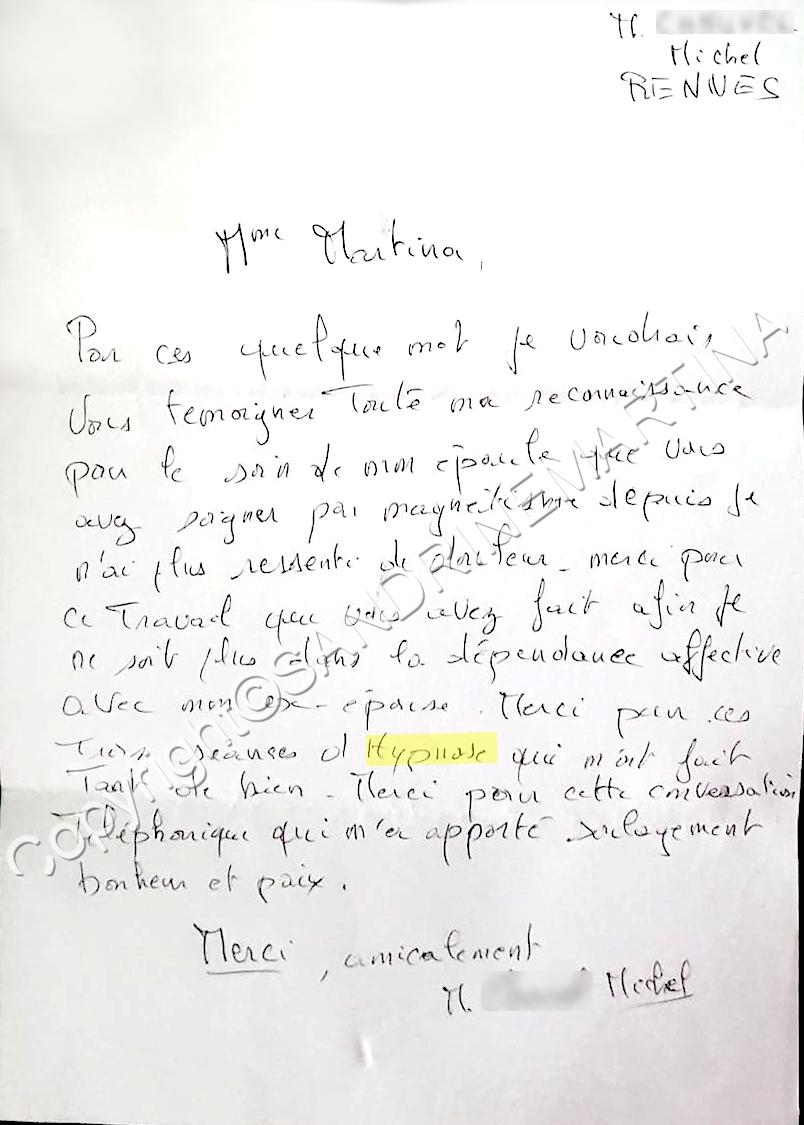 M.
Michel
RENNES
Mme Martina,
Par ces quelque mot je voudrais
vous temoigner Toute ma reconnaissance
pour le soin de mon épaule que vous
avez soigner par magnétisme depuis je
n'ai plus ressenti de douleur - merci pour
ce Travail que vous avez fait afin je
ne soit plus dans la dépendance affective
avec mon ex-épouse. Merci pour ces
Trois séances d'Hypnose qui m'ont fait
Tant de bien - Merci pour cette conversation
Téléphonique qui m'a apporté soulagement
bonheur et paix.
Merci, amicalement
M. Michel
Copyright©SANDRINEMARTINA